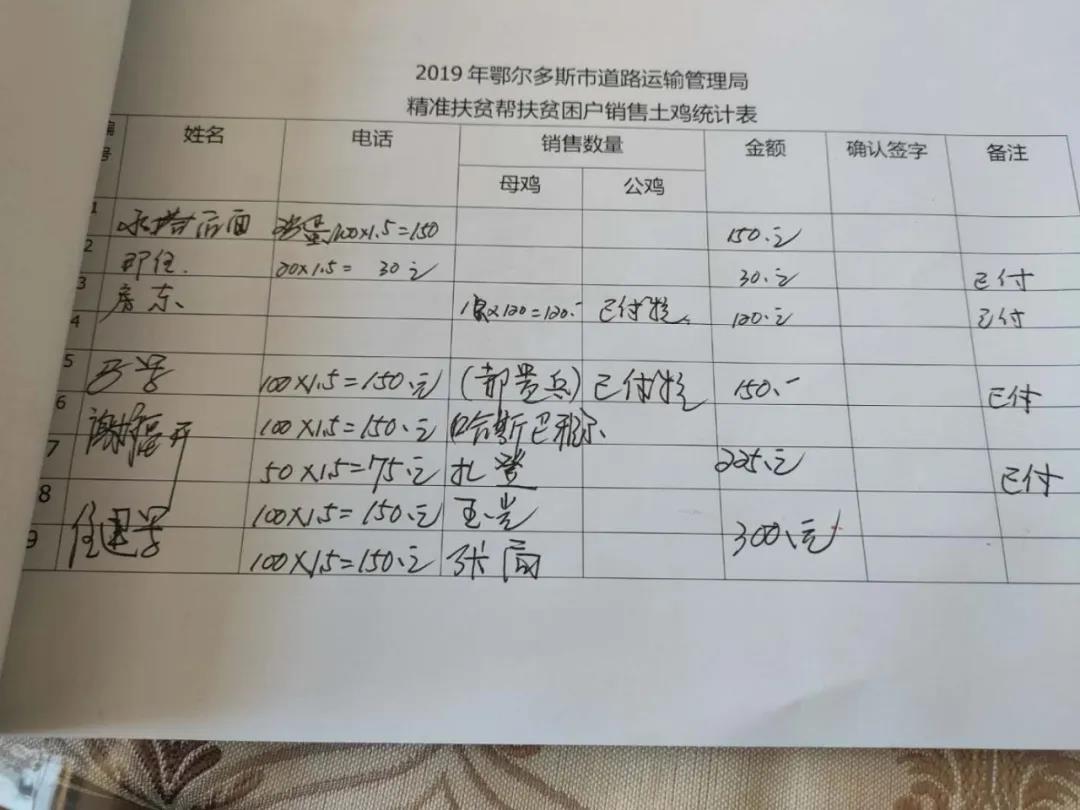 2019年鄂尔多斯市道路运输管理局
精准扶贫帮扶贫困户销售土鸡统计表
编号 姓名 电话 销售数量 金额 确认签字 备注
母鸡 公鸡
1 后面 100×1.5=150 150.元
2 20×1.5= 30元 30.元 已付
3 房东 ×120=120.- 已付 120.元 已付
4
5 100×1.5=150.元 (郝贵兵) 已付 150.- 已付
6 谢 开 100×1.5=150.元 哈斯巴雅尔
7 50×1.5=75.元 扎登 225.元 已付
8 100×1.5=150.元 王
9 任 100×1.5=150.元 张 300.元